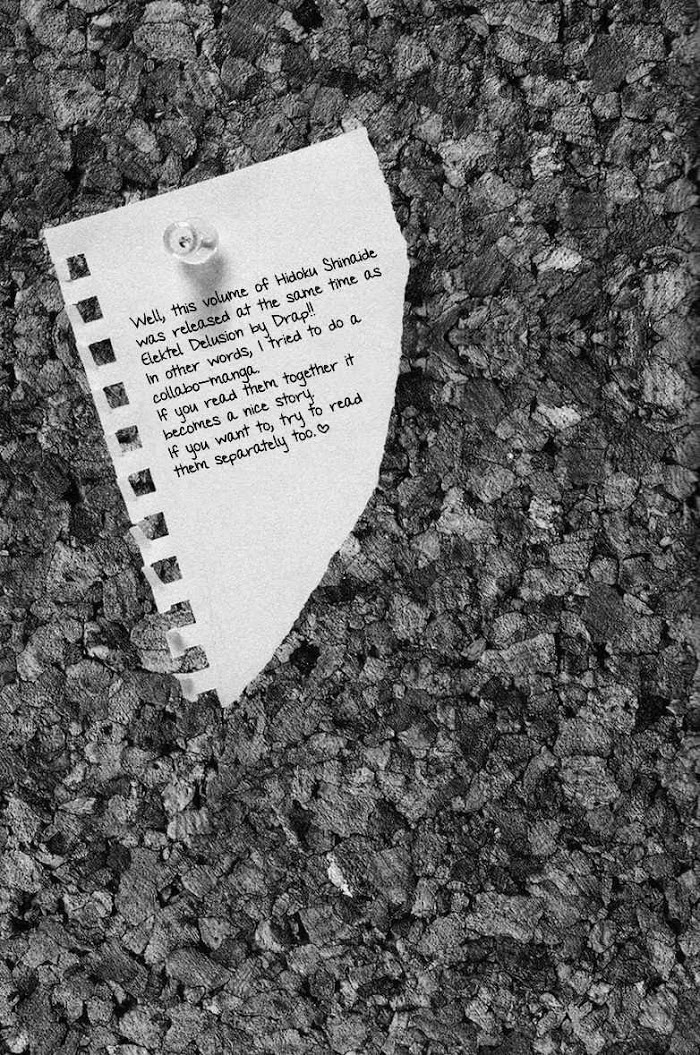 Well, this volume of Hidoku Shinaide
was released at the same time as
Elektel Delusion by Drap!!
In other words, I tried to do a
collabo-manga.
If you read them together it
becomes a nice story.
If you want to, try to read
them separately too.♡